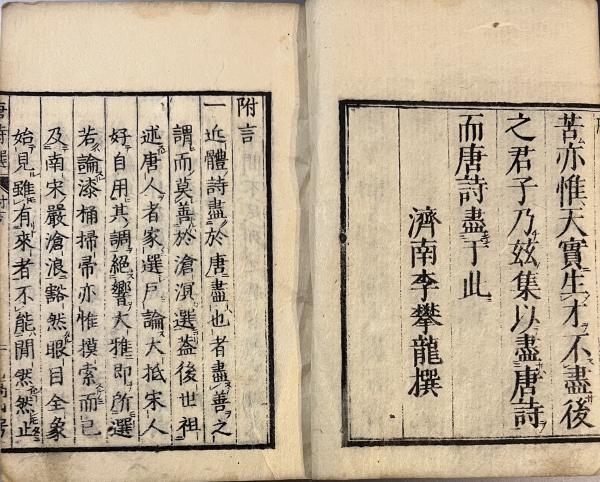 苦亦惟天實生才不盡後
之君子乃玆集以盡唐詩
而唐詩盡于此
濟南李攀龍撰
附言
一近體詩盡於唐盡也者盡善之
謂而莫善於滄溟選蓋後世祖
述唐人者家選戶論大抵宋人
好自用其調絕響大雅即所選
若論漆桶掃帚亦惟摸索而已
乃南宋嚴滄浪豁然眼目全象
始見雖有來者不能間然然止
唐詩選 附言